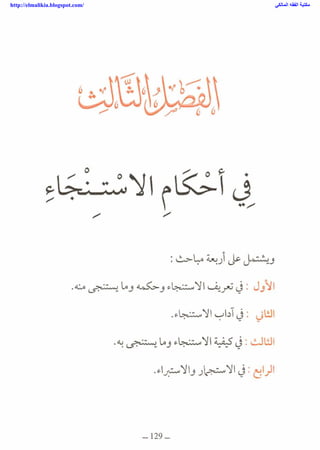 http://elmalikia.blogspot.com/
مكتبة الفقه المالكي
الفَصْلُ الثَّالِث
فِي أَحْكَامِ الاسْتِنْجَاءِ
ويشتمل على أربعة مباحث :
الأول : في تعريف الاستنجاء وحكمه وما يستنجى منه.
الثاني : في آداب الاستنجاء.
الثالث : في كيفية الاستنجاء وما يستنجى به.
الرابع : في الاستجمار والاستبراء.
ـ 129 ـ